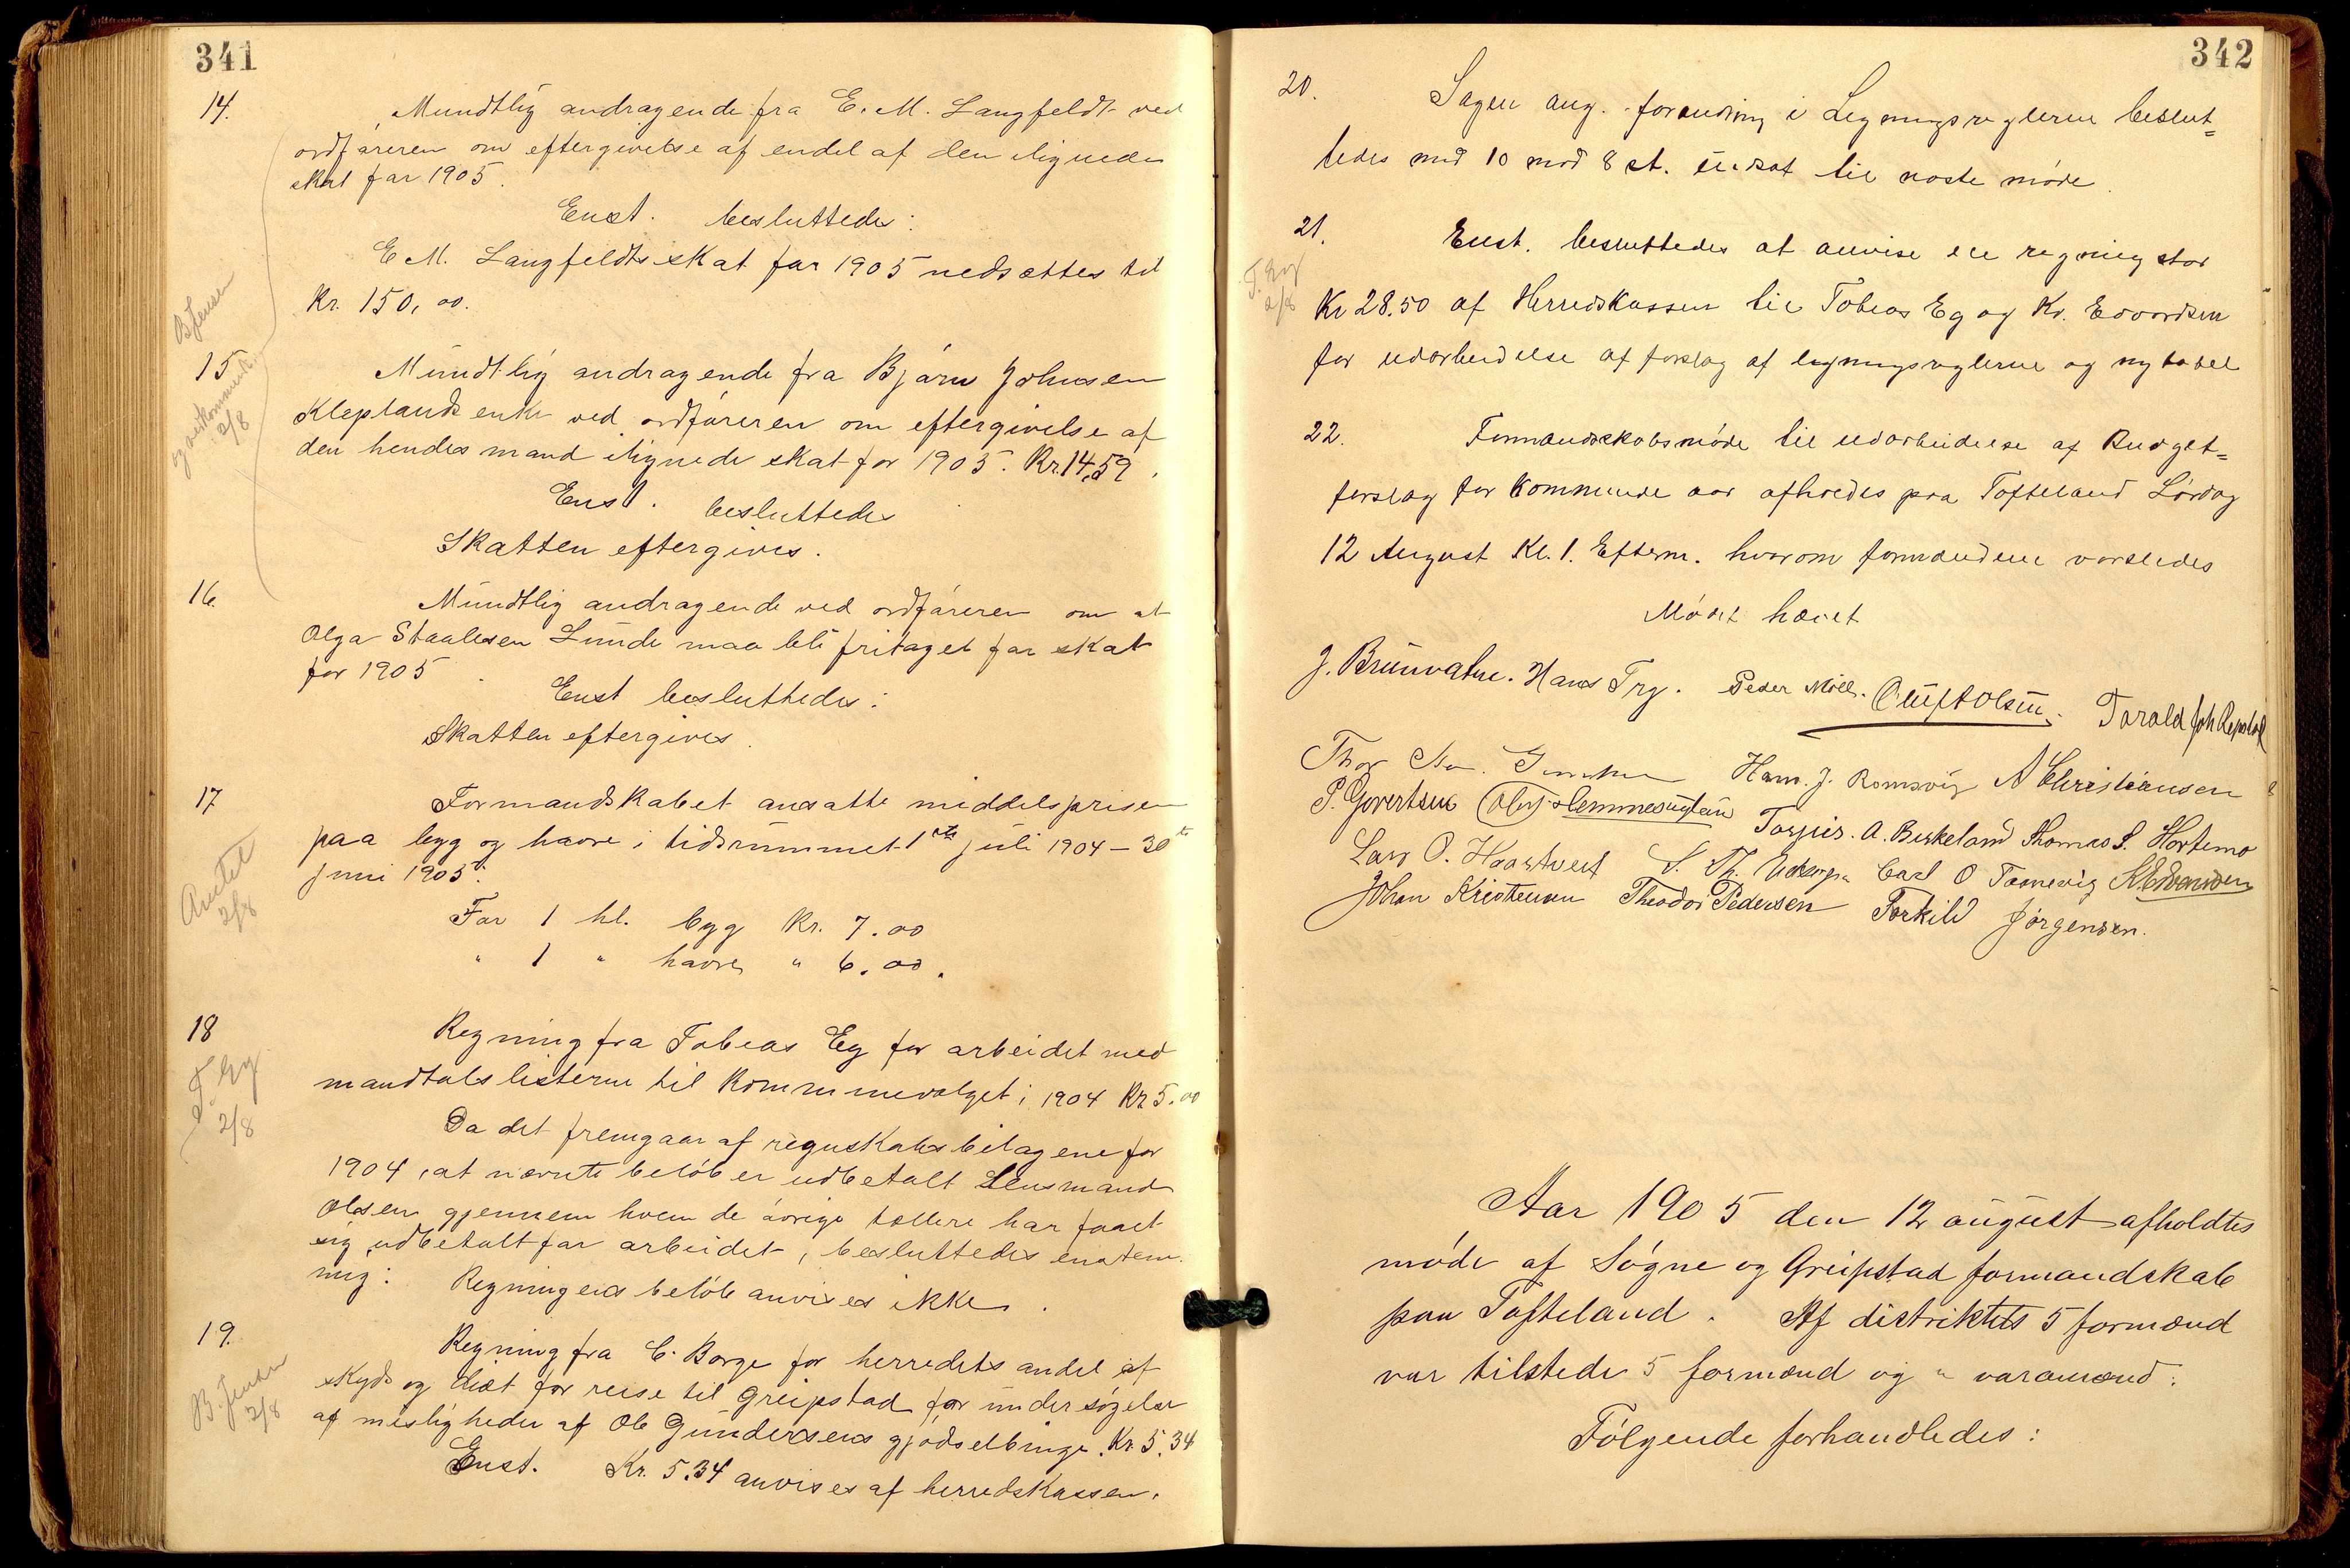 341
14.
Mundtlig andragende fra E. M. Langfeldt ved
ordføreren om eftergivelse af endel af den ilignede
skat for 1905.
Enst. besluttedes:
E M. Langfeldts skat for 1905 nedsættes til
Kr. 150,00.
B Jensen
og vedkommende
2/8
15
Mundtlig andragende fra Bjørn Johnsen
Kleplands enke ved ordføreren om eftergivelse af
den hendes mand ilignede skat for 1905. Kr. 14,59.
Enst. besluttedes
Skatten eftergives.
16.
Mundtlig andragende ved ordføreren om at
Olga Staalesen Lunde maa bli fritaget for skat
for 1905
Enst besluttedes:
Skatten eftergives.
17
Formandskabet ansatte middelsprisen
paa byg og havre i tidsrummet 1ste juli 1904 – 30te
juni 1905:
2/8
For 1 hl. byg Kr. 7.00
" 1 " havre " 6.00.
18
T. Eg
2/8
Regning fra Tobias Eg for arbeidet med
mandtalslisterne til Kommunevalget i 1904 Kr 5.00
Da det fremgaar af regnskabsbilagene for
1904, at nævnte beløb er udbetalt Lensmand
Olsen gjennem hvem de øvrige tællere har faaet
sig udbetalt for arbeidet, besluttedes enstem-
mig: Regningens beløb anvises ikke.
19.
B. Jensen
2/8
Regning fra C. Borge for herredets andel af
skyds og diæt for reise til Greipstad for undersøgelse
af misligheder af Ole Gundersens gjødselbinge. Kr. 5.34
Enst. Kr. 5.34 anvises af herredskassen.
342
20.
Sagen ang. forandring i Ligningsreglerne beslut=
tedes med 10 mod 8 st. udsat til næste møde.
21.
T. Eg
2/8
Enst. besluttedes at anvise en regning stor
Kr 28.50 af Herredskassen til Tobias Eg og Kr. Edvardsen
for udarbeidelse af forslag af ligningsreglerne og ny tabel
22.
Formandsskabsmøde til udarbeidelse af Budget=
forslag for kommende aar afholdes paa Tofteland Lørdag
12 August Kl. 1. Efterm. hvorom formændene varsledes
Mødet hævet
J. Brunvatne. Hans Try. Peder Møll. Oluf Olsen. Torald Joh Repstad
Thor Hans. J. Romsvig A Christiansen
P. Govertsen Torjus. A. Birkeland Thomas S. Hortemo
Lars O. Haastvedt S. Th. Carl O Tannevig K Edvardsen
Johan Kristensen Theodor Pedersen Torkild Jørgensen.
Aar 1905 den 12 august afholdtes
møde af Søgne og Greipstad formandskab
paa Tofteland. Af distriktets 5 formænd
var tilstede 5 formænd og " varamænd.
Følgende forhandledes: